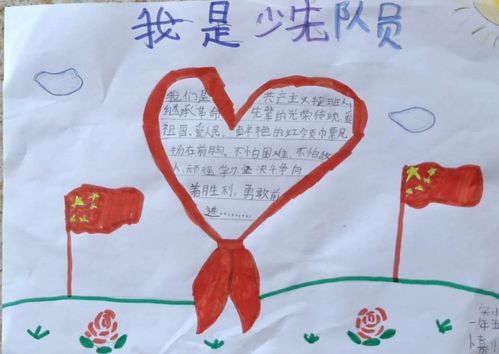 我是少先队员
我们是 共产主义接班人
继承革命 先辈的光荣传统,爱
祖国、爱人民, 鲜艳的红领巾飘
扬在前胸,不怕困难,不怕敌
人,顽强学习坚决斗争向
着胜利,勇敢前
进………
实小
一年五